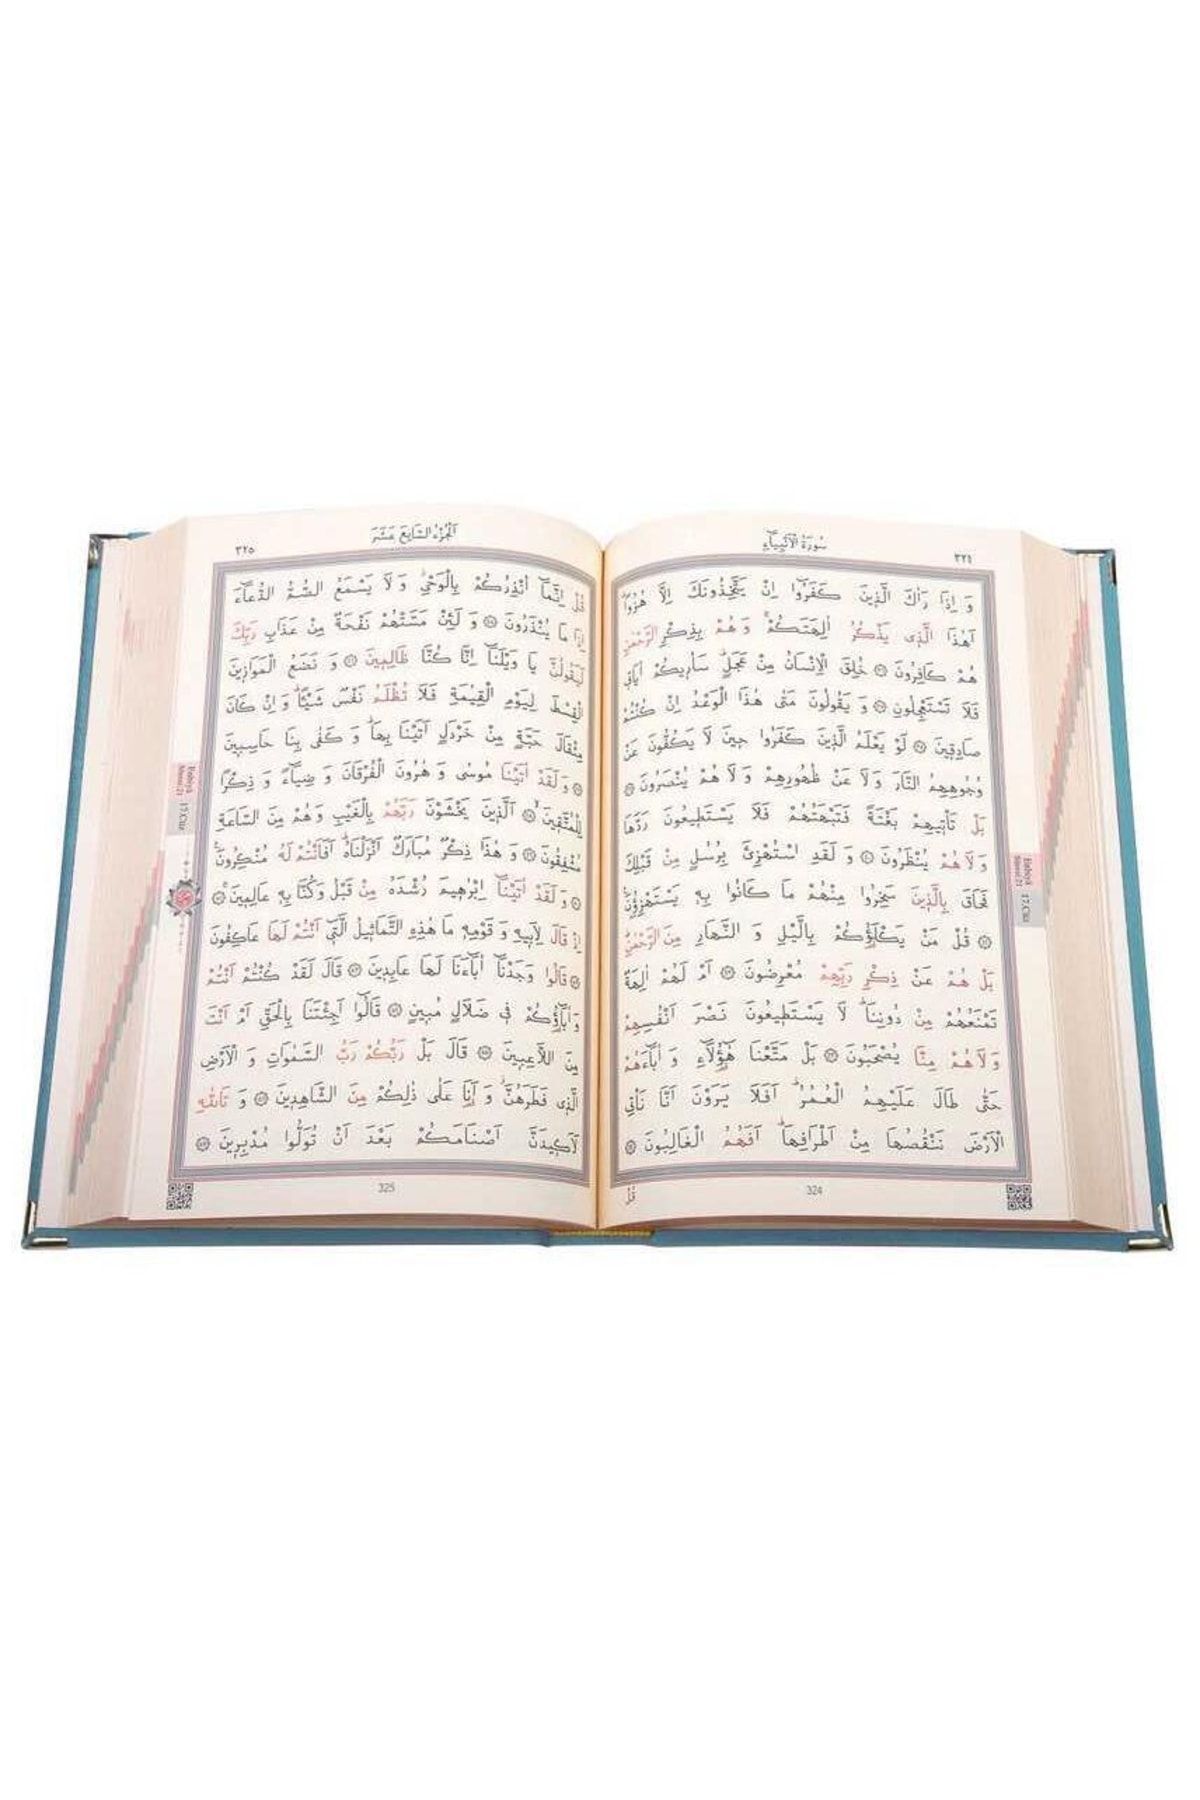 سُورَةُ الْاَنْبِيَاءِ
٣٢٤
وَ اِذَا رَاٰكَ الَّذٖينَ كَفَرُٓوا اِنْ يَتَّخِذُونَكَ اِلَّا هُزُوًاؕ
اَهٰذَا الَّذٖى يَذْكُرُ اٰلِهَتَكُمْۚ وَ هُمْ بِذِكْرِ الرَّحْمٰنِ
هُمْ كَافِرُونَ ۞ خُلِقَ الْاِنْسَانُ مِنْ عَجَلٍؕ سَاُرٖيكُمْ اٰيَاتٖى
فَلَا تَسْتَعْجِلُونِ ۞ وَ يَقُولُونَ مَتٰى هٰذَا الْوَعْدُ اِنْ كُنْتُمْ
صَادِقٖينَ ۞ لَوْ يَعْلَمُ الَّذٖينَ كَفَرُوا حٖينَ لَا يَكُفُّونَ عَنْ
وُجُوهِهِمُ النَّارَ وَ لَا عَنْ ظُهُورِهِمْ وَ لَا هُمْ يُنْصَرُونَ ۞
بَلْ تَاْتٖيهِمْ بَغْتَةً فَتَبْهَتُهُمْ فَلَا يَسْتَطٖيعُونَ رَدَّهَا
وَ لَا هُمْ يُنْظَرُونَ ۞ وَ لَقَدِ اسْتُهْزِئَ بِرُسُلٍ مِنْ قَبْلِكَ
فَحَاقَ بِالَّذٖينَ سَخِرُوا مِنْهُمْ مَا كَانُوا بِهٖ يَسْتَهْزِؤُنَ
۞ قُلْ مَنْ يَكْلَؤُكُمْ بِالَّيْلِ وَ النَّهَارِ مِنَ الرَّحْمٰنِؕ
بَلْ هُمْ عَنْ ذِكْرِ رَبِّهِمْ مُعْرِضُونَ ۞ اَمْ لَهُمْ اٰلِهَةٌ
تَمْنَعُهُمْ مِنْ دُونِنَاؕ لَا يَسْتَطٖيعُونَ نَصْرَ اَنْفُسِهِمْ
وَ لَا هُمْ مِنَّا يُصْحَبُونَ ۞ بَلْ مَتَّعْنَا هٰٓؤُلَٓاءِ وَ اٰبَٓاءَهُمْ
حَتّٰى طَالَ عَلَيْهِمُ الْعُمُرُؕ اَفَلَا يَرَوْنَ اَنَّا نَاْتِى
الْاَرْضَ نَنْقُصُهَا مِنْ اَطْرَافِهَاؕ اَفَهُمُ الْغَالِبُونَ ۞
324
قُلْ
17.Cüz
Enbiyâ
Sûresi 21
اَلْجُزْءُ السَّابِعَ عَشَرَ
٣٢٥
قُلْ اِنَّمَٓا اُنْذِرُكُمْ بِالْوَحْىِؗ وَ لَا يَسْمَعُ الصُّمُّ الدُّعَٓاءَ
اِذَا مَا يُنْذَرُونَ ۞ وَ لَئِنْ مَسَّتْهُمْ نَفْحَةٌ مِنْ عَذَابِ رَبِّكَ
لَيَقُولُنَّ يَا وَيْلَنَٓا اِنَّا كُنَّا ظَالِمٖينَ ۞ وَ نَضَعُ الْمَوَازٖينَ
الْقِسْطَ لِيَوْمِ الْقِيٰمَةِ فَلَا تُظْلَمُ نَفْسٌ شَيْـًٔاؕ وَ اِنْ كَانَ
مِثْقَالَ حَبَّةٍ مِنْ خَرْدَلٍ اَتَيْنَا بِهَاؕ وَ كَفٰى بِنَا حَاسِبٖينَ
۞ وَ لَقَدْ اٰتَيْنَا مُوسٰى وَ هٰرُونَ الْفُرْقَانَ وَ ضِيَٓاءً وَ ذِكْرًا
لِلْمُتَّقٖينَۙ ۞ اَلَّذٖينَ يَخْشَوْنَ رَبَّهُمْ بِالْغَيْبِ وَ هُمْ مِنَ السَّاعَةِ
مُشْفِقُونَ ۞ وَ هٰذَا ذِكْرٌ مُبَارَكٌ اَنْزَلْنَاهُؕ اَفَاَنْتُمْ لَهُ مُنْكِرُونَ
۞ وَ لَقَدْ اٰتَيْنَٓا اِبْرٰهٖيمَ رُشْدَهُ مِنْ قَبْلُ وَ كُنَّا بِهٖ عَالِمٖينَ ۞
اِذْ قَالَ لِاَبٖيهِ وَ قَوْمِهٖ مَا هٰذِهِ التَّمَاثٖيلُ الَّتٖٓى اَنْتُمْ لَهَا عَاكِفُونَ
۞ قَالُوا وَجَدْنَٓا اٰبَٓاءَنَا لَهَا عَابِدٖينَ ۞ قَالَ لَقَدْ كُنْتُمْ اَنْتُمْ
وَ اٰبَٓاؤُكُمْ فٖى ضَلَالٍ مُبٖينٍ ۞ قَالُٓوا اَجِئْتَنَا بِالْحَقِّ اَمْ اَنْتَ
مِنَ اللَّاعِبٖينَ ۞ قَالَ بَلْ رَبُّكُمْ رَبُّ السَّمٰوَاتِ وَ الْاَرْضِ
الَّذٖى فَطَرَهُنَّؗ وَ اَنَا عَلٰى ذٰلِكُمْ مِنَ الشَّاهِدٖينَ ۞ وَ تَاللّٰهِ
لَاَكٖيدَنَّ اَصْنَامَكُمْ بَعْدَ اَنْ تُوَلُّوا مُدْبِرٖينَ ۞
325
17.Cüz
Enbiyâ
Sûresi 21